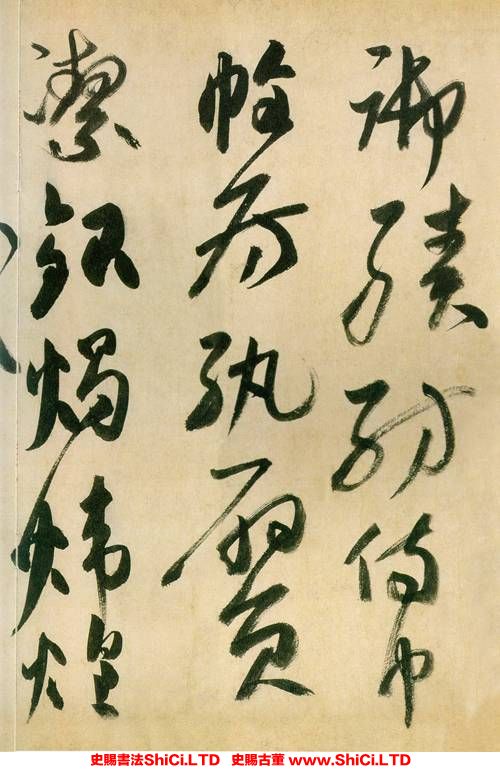 御績紡侍巾
帷房紈扇員
潔銀燭煒煌
史賜書法ShiCi.LTD 史賜古董 www.ShiCi.LTD